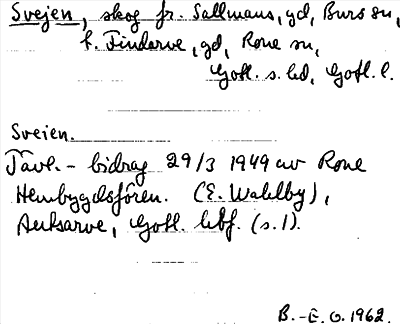 Svejen, skog fr. Sallmans, gd, Burs sn,
t. Findarve, gd, Rone sn,
Gotl. s. hd, Gotl. l.
Sveien.
Tävl.- bidrag 29/3 1949 av Rone
Hembygdsfören. (E. Wahlby),
Autsarve, Gotl. hbf. (s. 1).
B.-E. O. 1962.